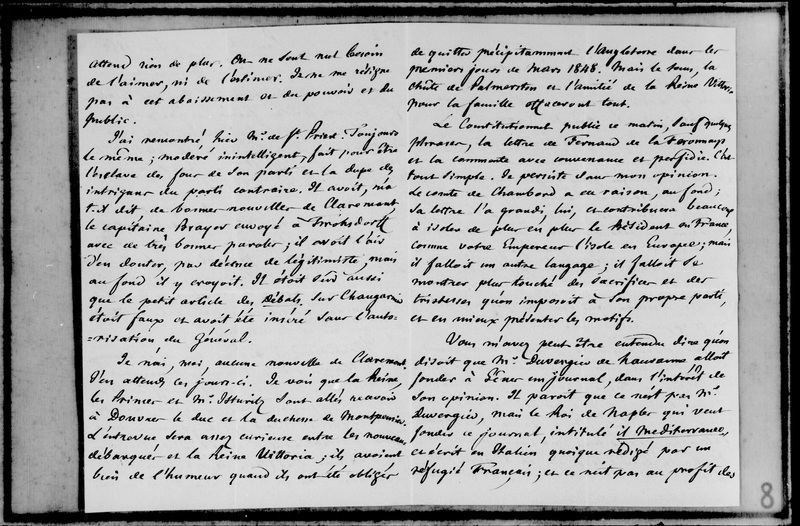 attend rien de plus. On ne sent nul besoin
de l'aimer, ni de l'estimer. Je ne me résigne
pas à cet abaissement et du pouvoir et du
public.
J'ai rencontré hier Mr. de St. Priest. Toujours
le même ; modéré inintelligent, fait pour être
l'esclave des fous de son parti et la dupe des
intrigans du parti contraire. Il avoit, m'a
t-il dit, de bonnes nouvelles de Claremont,
le capitaine Brayer envoyé à Frohsdorff
avec de très bonnes paroles ; il avoit l'air
d'en douter, par décence de légitimiste, mais
au fond il y croyoit. Il étoit sûr aussi
que le petit article des Débats, sur Changarnier
étoit faux et avoit été inséré sans l'auto-
=risation du Général.
Je n'ai, moi, aucune nouvelle de Claremont.
J'en attends ces jours-ci. Je vois que la Reine,
les Princes et Mr. Isturitz sont allés recevoir
à Douvres le duc et la duchesse de Montpensier.
L'entrevue sera assez curieuse entre les nouveaux
débarqués et la Reine Victoria ; ils avoient
bien de l'humeur quand ils ont été obligés
de quitter précipitamment l'Angleterre dans les
premiers jours de Mars 1848. Mais le tems, la
chûte de Palmerston et l'amitié de la Reine Victoria
pour la famille effaceront tout.
Le Constitutionnel publie ce matin, sauf quelques
phrases, la lettre de Fernand de la Ferronnays
et la commente avec convenance et perfidie. C'est
tout simple. Je persiste dans mon opinion.
Le comte de Chambord a eu raison, au fond ;
sa lettre l'a grandi, lui, et contribuera beaucoup
à isoler de plus en plus le Président en France,
comme votre Empereur l'isole en Europe ; mais
il falloit un autre langage ; il falloit se
montrer plus touché des sacrifices et des
tristesses qu'on imposoit à son propre parti,
et en mieux présenter les motifs.
Vous m'avez peut être entendu dire qu'on
disoit que Mr. Duvergier de hauranne alloit
fonder à Gênes un journal, dans l'intérêt de
son opinion. Il paroit que ce n'est pas Mr.
Duvergier, mais le Roi de Naples qui veut
fonder ce journal, intitulé il Mediterraneo,
et écrit en Italien quoique rédigé par un
réfugié Français ; et ce n'est pas au profit des
8